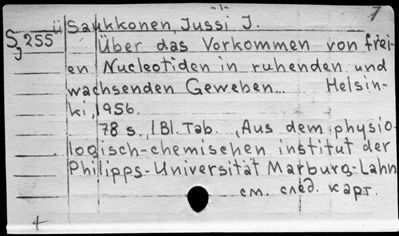 7
ü Saukkonen, Jussi J.
S 255 Über das Vorkommen von frei-
J en Nucleotiden in ruhenden und
wachsenden Geweben... Helsin-
ki, 1956.
78 s., 1 Bl. Tab. „Aus dem physio-
logisch-chemischen institut der
Philipps-Universität Marburg-Lahn
см. след. карт.
+